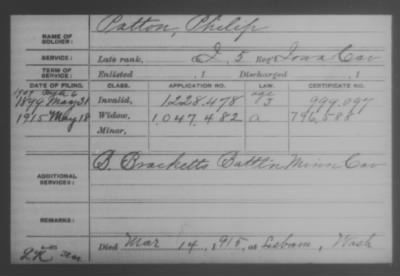 NAME OF SOLDIER: Patton, Philip
SERVICE: Late rank, I, 5 Reg't Iowa Cav
TERM OF SERVICE: Enlisted , 1 Discharged , 1
DATE OF FILING. CLASS. APPLICATION NO. LAW. CERTIFICATE NO.
1899 May 31 Invalid, 1228.478 999.097
1915 May 18 Widow, 1,047,482 a 796,588
Minor,
ADDITIONAL SERVICES: B. Bracketts Batt'n Minn Cav
REMARKS:
Died Mar 14, 1915, at , Wash